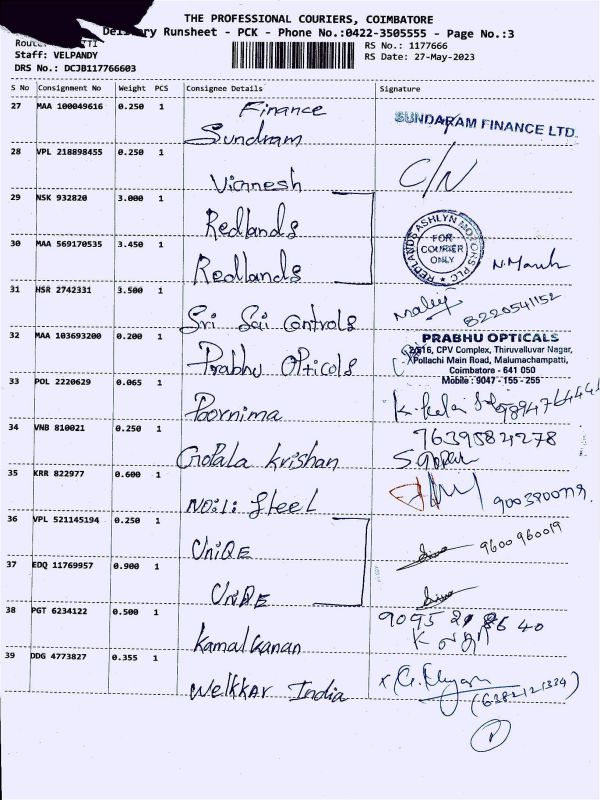 THE PROFESSIONAL COURIERS, COIMBATORE
Delivery Runsheet - PCK - Phone No.:0422-3505555 - Page No.:3
Route:
RS No.: 1177666
Staff: VELPANDY
RS Date: 27-May-2023
DRS No.: DCJB117766603
S No Consignment No Weight PCS Consignee Details Signature
27 MAA 100049616 0.250 1 Finance
Sundram
SUNDARAM FINANCE LTD.
28 VPL 218898455 0.250 1
Vignesh
C/N
29 NSK 932820 3.000 1
Redlands
REDLANDS ASHLYN MOTORS PLC
FOR COURIER ONLY
30 MAA 569170535 3.450 1
Redlands
31 HSR 2742331 3.500 1
Sri Sai Controls
8220541152
32 MAA 103693200 0.200 1
Prabhu Opticols
PRABHU OPTICALS
2/316, CPV Complex, Thiruvalluvar Nagar,
Pollachi Main Road, Malumachampatti,
Coimbatore - 641 050
Mobile : 9047 - 155 - 255
33 POL 2220629 0.065 1
Poornima
34 VNB 810021 0.250 1
Gopala krishan
7639582278
35 KRR 822977 0.600 1
Steel
36 VPL 521145194 0.250 1
UniQE
9600960019
37 EDQ 11769957 0.900 1
UniQE
38 PGT 6234122 0.500 1
kamalkanan
39 DDG 4773827 0.355 1
Welkkar India
(6382121334)